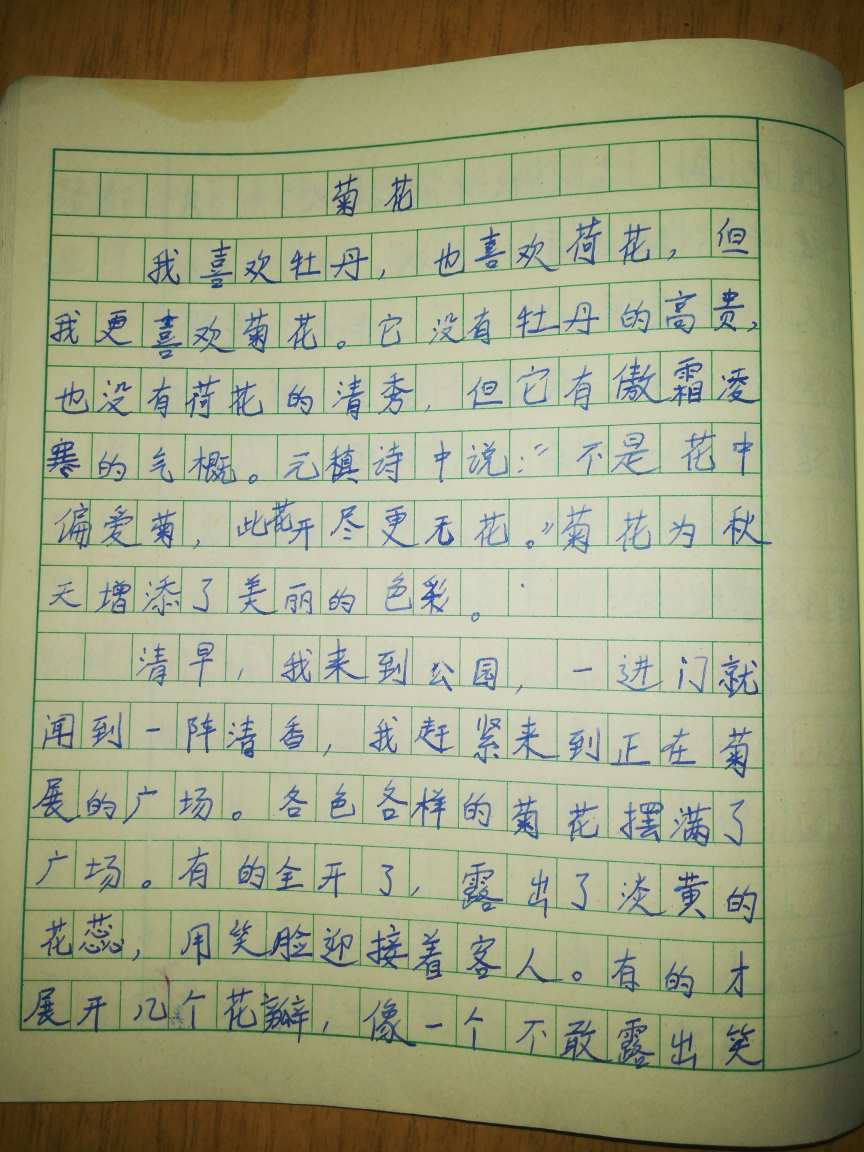 菊花
我喜欢牡丹，也喜欢荷花，但
我更喜欢菊花。它没有牡丹的高贵，
也没有荷花的清秀，但它有傲霜凌
寒的气概。元稹诗中说：“不是花中
偏爱菊，此花开尽更无花。”菊花为秋
天增添了美丽的色彩。
清早，我来到公园，一进门就
闻到一阵清香，我赶紧来到正在菊
展的广场。各色各样的菊花摆满了
广场。有的全开了，露出了淡黄的
花蕊，用笑脸迎接着客人。有的才
展开几个花瓣，像一个不敢露出笑